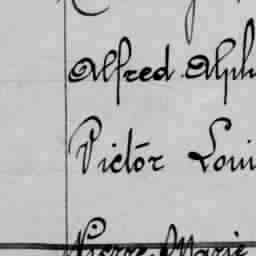 Alfred Alph
Victor Loui
Pierre Marie